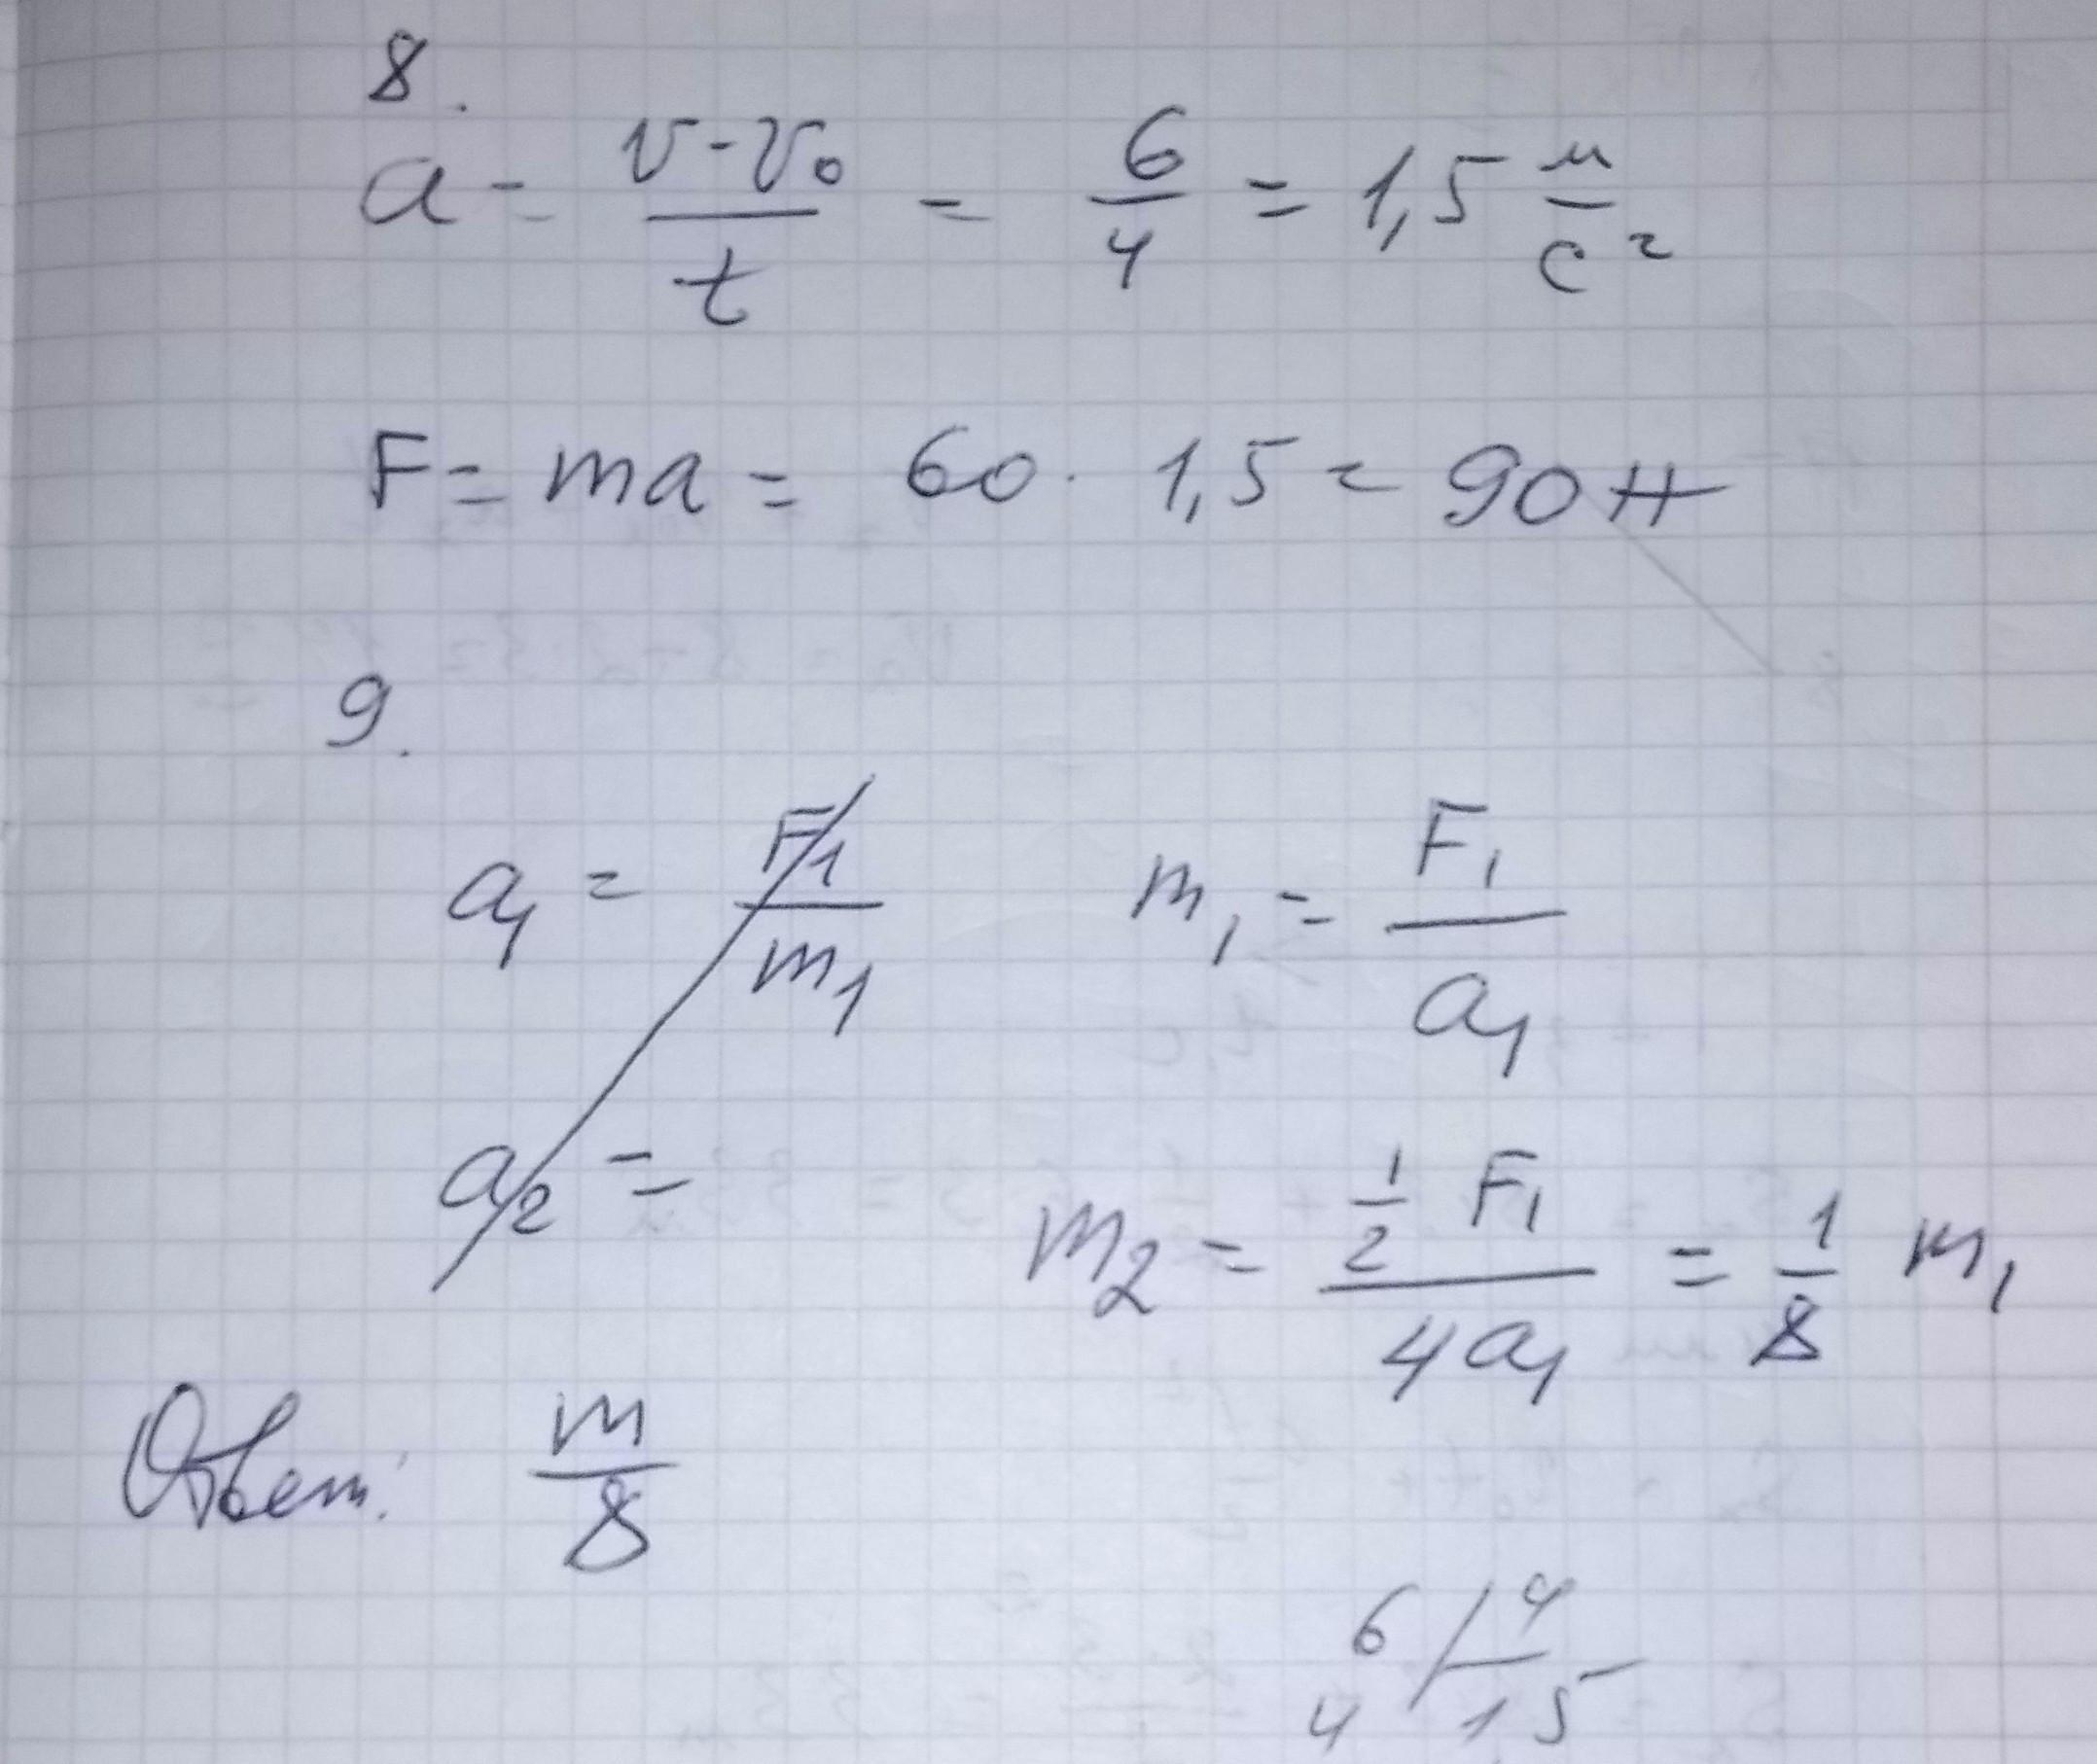 8.
a = (v - v₀)/t = 6/4 = 1,5 м/с²
F = ma = 60 · 1,5 = 90 Н
9.
a₁ = F₁/m₁
m₁ = F₁/a₁
a₂ =
m₂ = (1/2 F₁)/(4a₁) = 1/8 m₁
Ответ: m/8
6 / 4
4 1 5